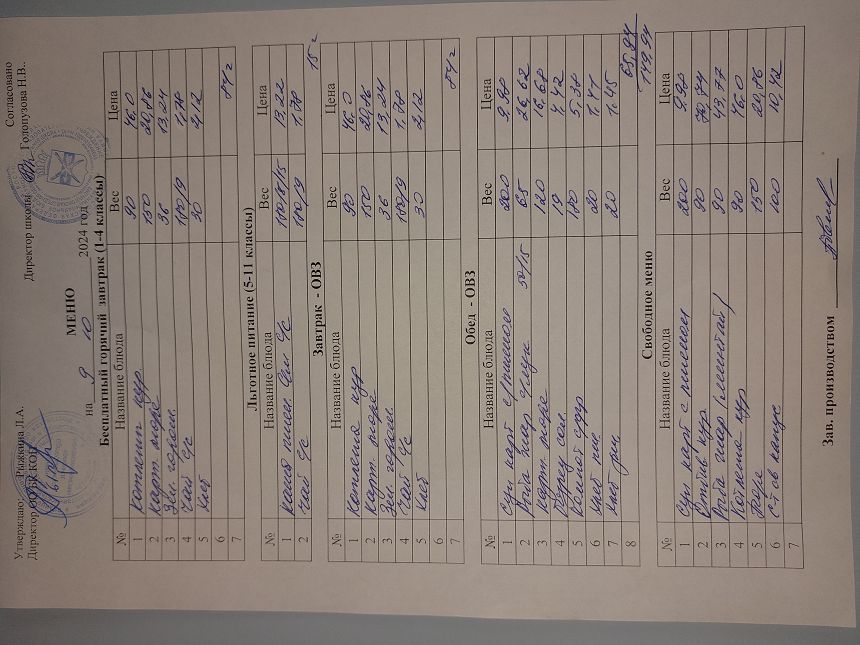 Утверждаю: Рыжкина Л.А. Согласовано
Директор Директор школы Голопузова Н.В..
МЕНЮ
на 9 10 2024 год
Бесплатный горячий завтрак (1-4 классы)
№ Название блюда Вес Цена
1 Котлета кур 90 46.0
2 Карт. пюре 150 29,86
3 Зел. горош. 36 13.24
4 Чай с/с 180/9 1.78
5 Хлеб 30 2,12
6
7
Льготное питание (5-11 классы)
№ Название блюда Вес Цена
1 Каша с/с 13,22
2 Чай с/с 180/9 1.78
15 г
Завтрак - ОВЗ
№ Название блюда Вес Цена
1 Котлета кур 90 46.0
2 Карт. пюре 150 29,86
3 Зел. горош. 36 13,24
4 Чай с/с 180/9 1.78
5 Хлеб 30 2,12
6
7
Обед - ОВЗ
№ Название блюда Вес Цена
1 Суп карт с/пшеном 200 9,98
2 Рыба жар с/лук 50/15 65 26,62
3 Карт. пюре 120 16,68
4 19 4,42
5 180 5,38
6 Хлеб пш 20 1.41
7 Хлеб рж 20 1.45
8 65,94
149.94
Свободное меню
№ Название блюда Вес Цена
1 Суп карт с пшеном 200 9,98
2 кур 90 70,74
3 Рыба жар (минтай) 90 43,77
4 Котлета кур 90 46.0
5 Пюре 150 29,86
6 100 10,42
7
Зав. производством